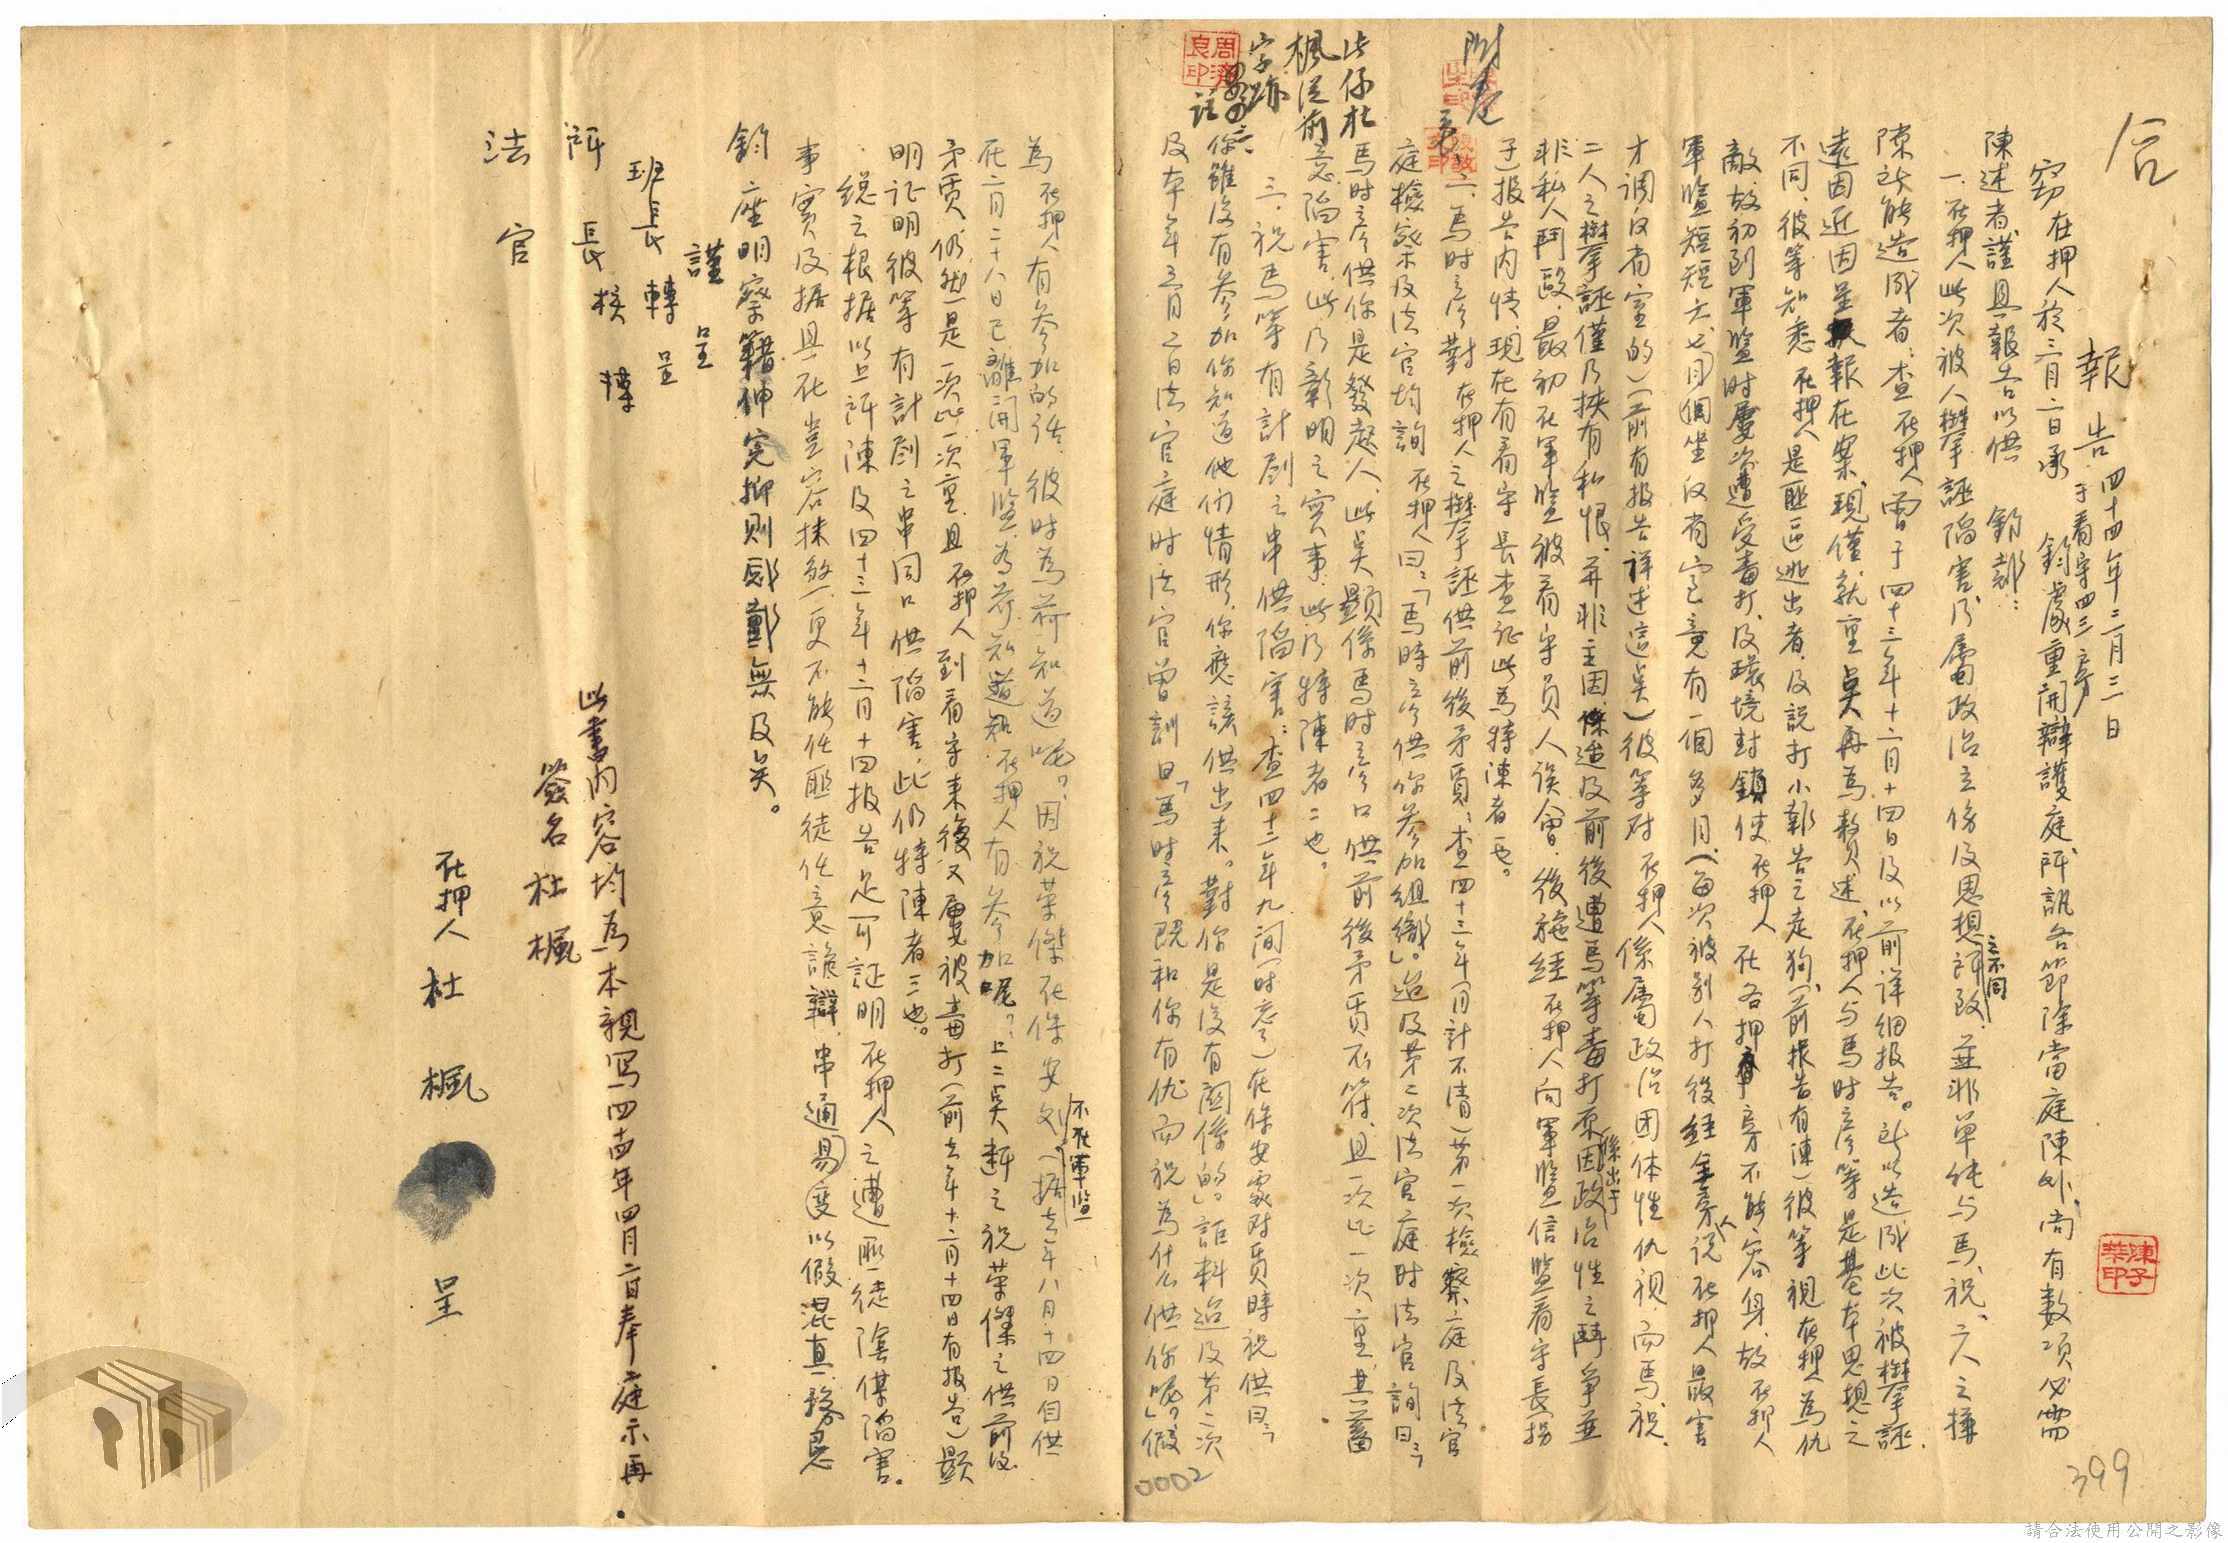 合
報告 四十四年三月三日
于看守四三房
竊在押人於三月二日承 鈞處重開辯護庭所訊各節除當庭陳外,尚有數項必需
陳述者謹具報告以供 鈞部:
一、在押人此次被人攀誣陷害乃屬政治立場及思想之不同所致,並非單純与馬、祝、六人之
陳訴能造成者:查在押人曾于四十三年十二月十四日及以前詳細报告。所以造成此次被攀誣
遠因近因呈報在案,現僅就重點再為敘述,在押人与馬时彥等是基本思想之
不同,彼等知悉在押人是匪區逃出者,及説打小報告之走狗(前报告有陳)彼等視在押為仇
敵,故初到軍監时屢次遭受毒打,及環境封鎖使在押人在各押房不能容身,故在押人
軍監短短六、七月個坐仅有室已竟有一個多月(每次被別人打後經年房人説在押人最害
才调仅有室的)(前有报告詳述這點)彼等对在押人係屬政治团体性仇視,而馬、祝、
二人之攀誣僅乃挾有私恨,并非主因,追及前後遭馬等毒打原因係出于政治性之鬪爭並
非私人鬪毆,最初在軍監被看守員人誤會,後施經在押人向軍監信監看守長报
于报告内情,現在有看守長查証此為特陳者一也。
二、馬时彥對在押人之攀誣供前後矛盾:查四十三年(月計不清)第一次檢察庭及法官
庭檢察及法官均詢在押人曰:「馬時彥供你參加組織」。迨及第二次法官庭时法官詢曰:「
馬时彥供你是發起人,此點顯係馬时彥口供前後矛盾不符,且一次比一次重,其蓄
意陷害,此乃彰明之實事,此乃特陳者二也。
三、祝馬等有計劃之串供陷害:查四十三年九(间時忘了)在保安處对质時祝供曰:「
你雖没有參加你知道他们情形,你應該供出来。對你是没有關係的。」詎料迨及第二次
及本年三月二日法官庭时法官曾訓曰:「馬时彥既和你有仇而祝為什么供你呢?」假
為在押人有參加的話,彼时為荷知道呢?因祝英傑在保安処不在軍監(据去年八月十四日自供
在六月二十八日已離開軍監為荷知道在押人有參加呢?上二點釋之祝英傑之供前後
矛盾,仍然是一次比一次重,且在押人到看守来後又屢被毒打(前去年十二月十四日有报告)顯
明証明彼等有計劃之串同口供陷害,此仍特陳者三也。
總之根据以上所陳及四十三年十二月十四报告足可証明在押人之遭匪徒陰謀陷害。
事實及据具在豈容抹煞,更不能任匪徒任意詭辯,串通易度以假混真,務懇
鈞座明察籍伸冤抑則感戴無及矣。
謹呈
班長轉呈
所長核轉
法官
此書内容均為本親写四十四年四月二日奉庭示再
簽名杜楓
在押人杜楓呈
附卷
此係杜
楓從前
字跡
周濟良印
陳子英印
399
0002
請合法使用公開之影像